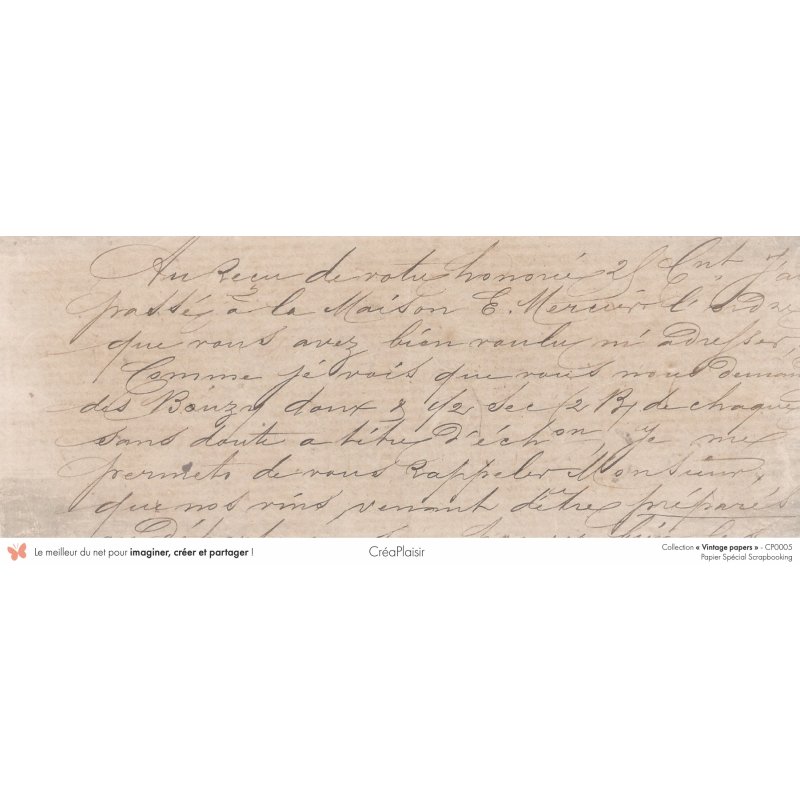 Au Reçu de votre honorée 25 Cnt j'ai
passé à la Maison E. Mercier l'ordre
que vous avez bien voulu m'adresser,
Comme je vois que vous nous deman
des Bouzy doux & 1/2 sec (2 B) de chaque
sans doute a titre d'échon, je me
permets de vous Rappeler Monsieur,
que nos vins venant d'être préparés
Le meilleur du net pour imaginer, créer et partager !
CréaPlaisir
Collection « Vintage papers » - CP0005
Papier Spécial Scrapbooking